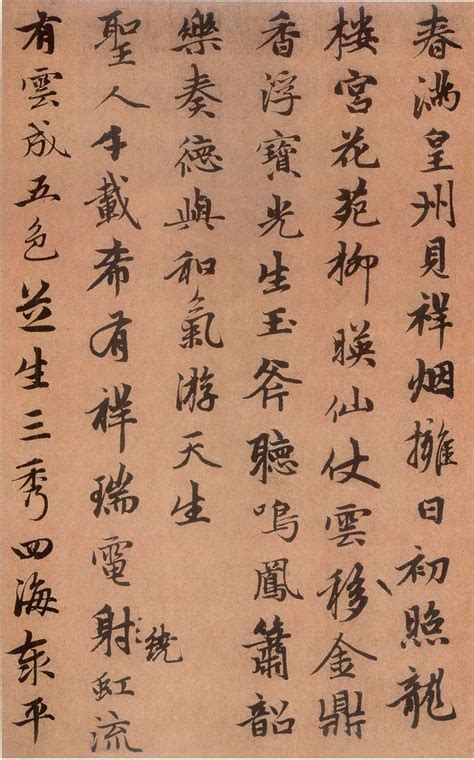 春満皇州見祥烟擁日初照龍
楼宮花苑柳暎仙仗雲移金鼎
香浮寶光生玉斧聽鳴鳳簫韶
樂奏德與和氣游天生
聖人千載希有祥瑞電射虹流
繞
有雲成五色芝生三秀四海泰平